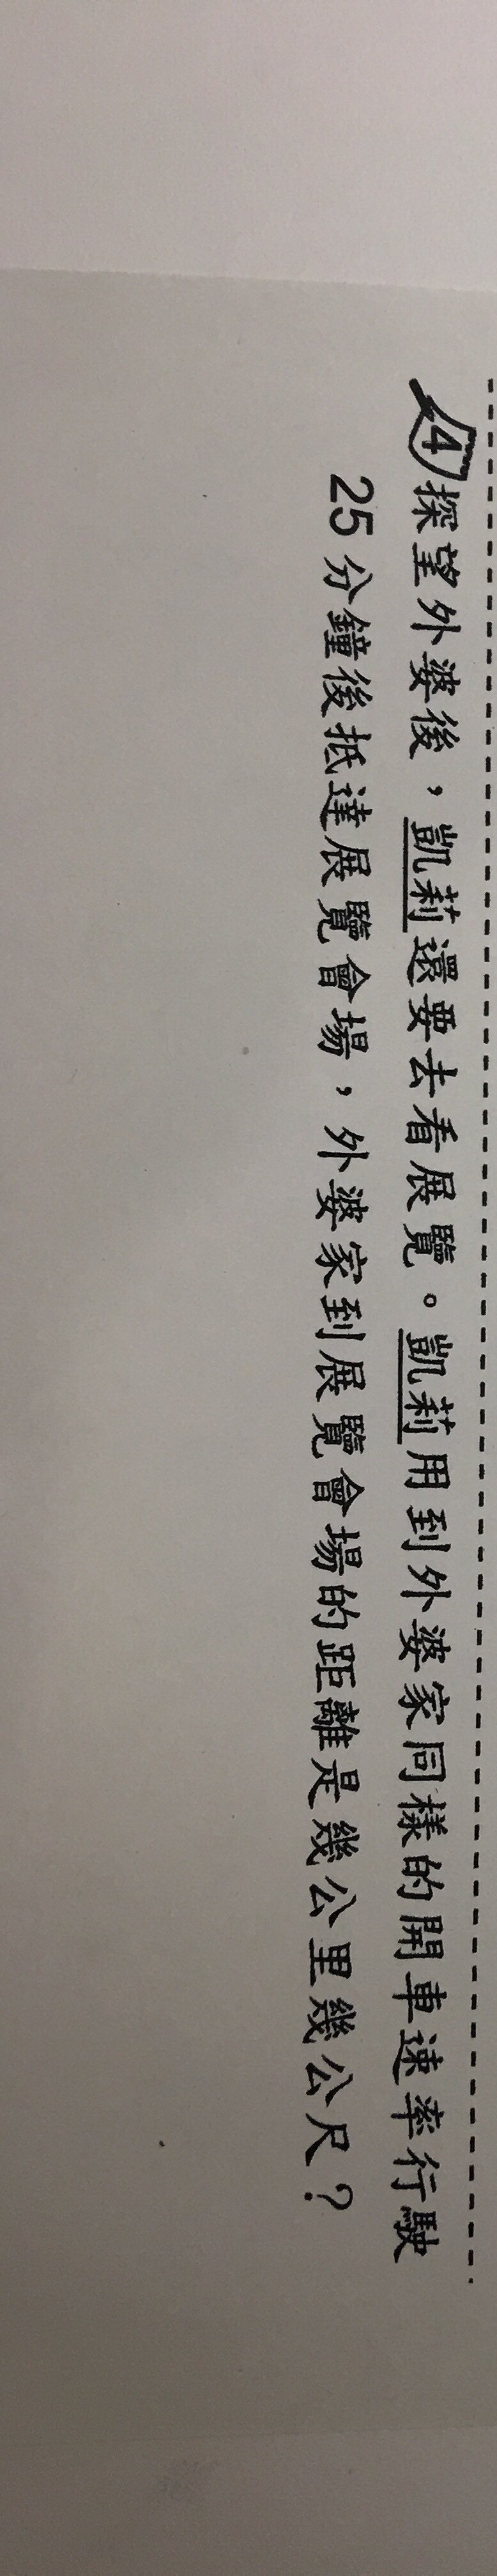 4 探望外婆後，凱莉還要去看展覽。凱莉用到外婆家同樣的開車速率行駛
25 分鐘後抵達展覽會場，外婆家到展覽會場的距離是幾公里幾公尺？